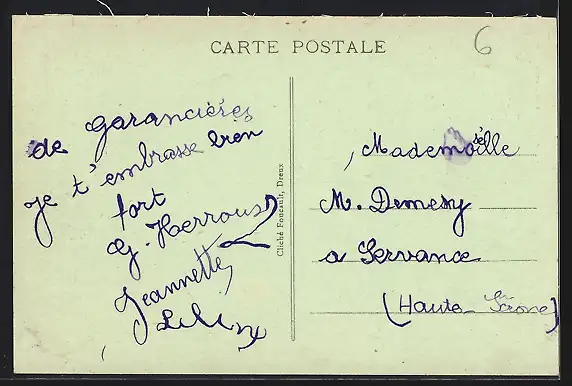 CARTE POSTALE
6
de garancières
je t'embrasse bien
fort
G. Herrous
Jeannette
Cliché Foucault, Dreux
Mademoiselle
M. Demesy
a Servance
(Haute-Saône)